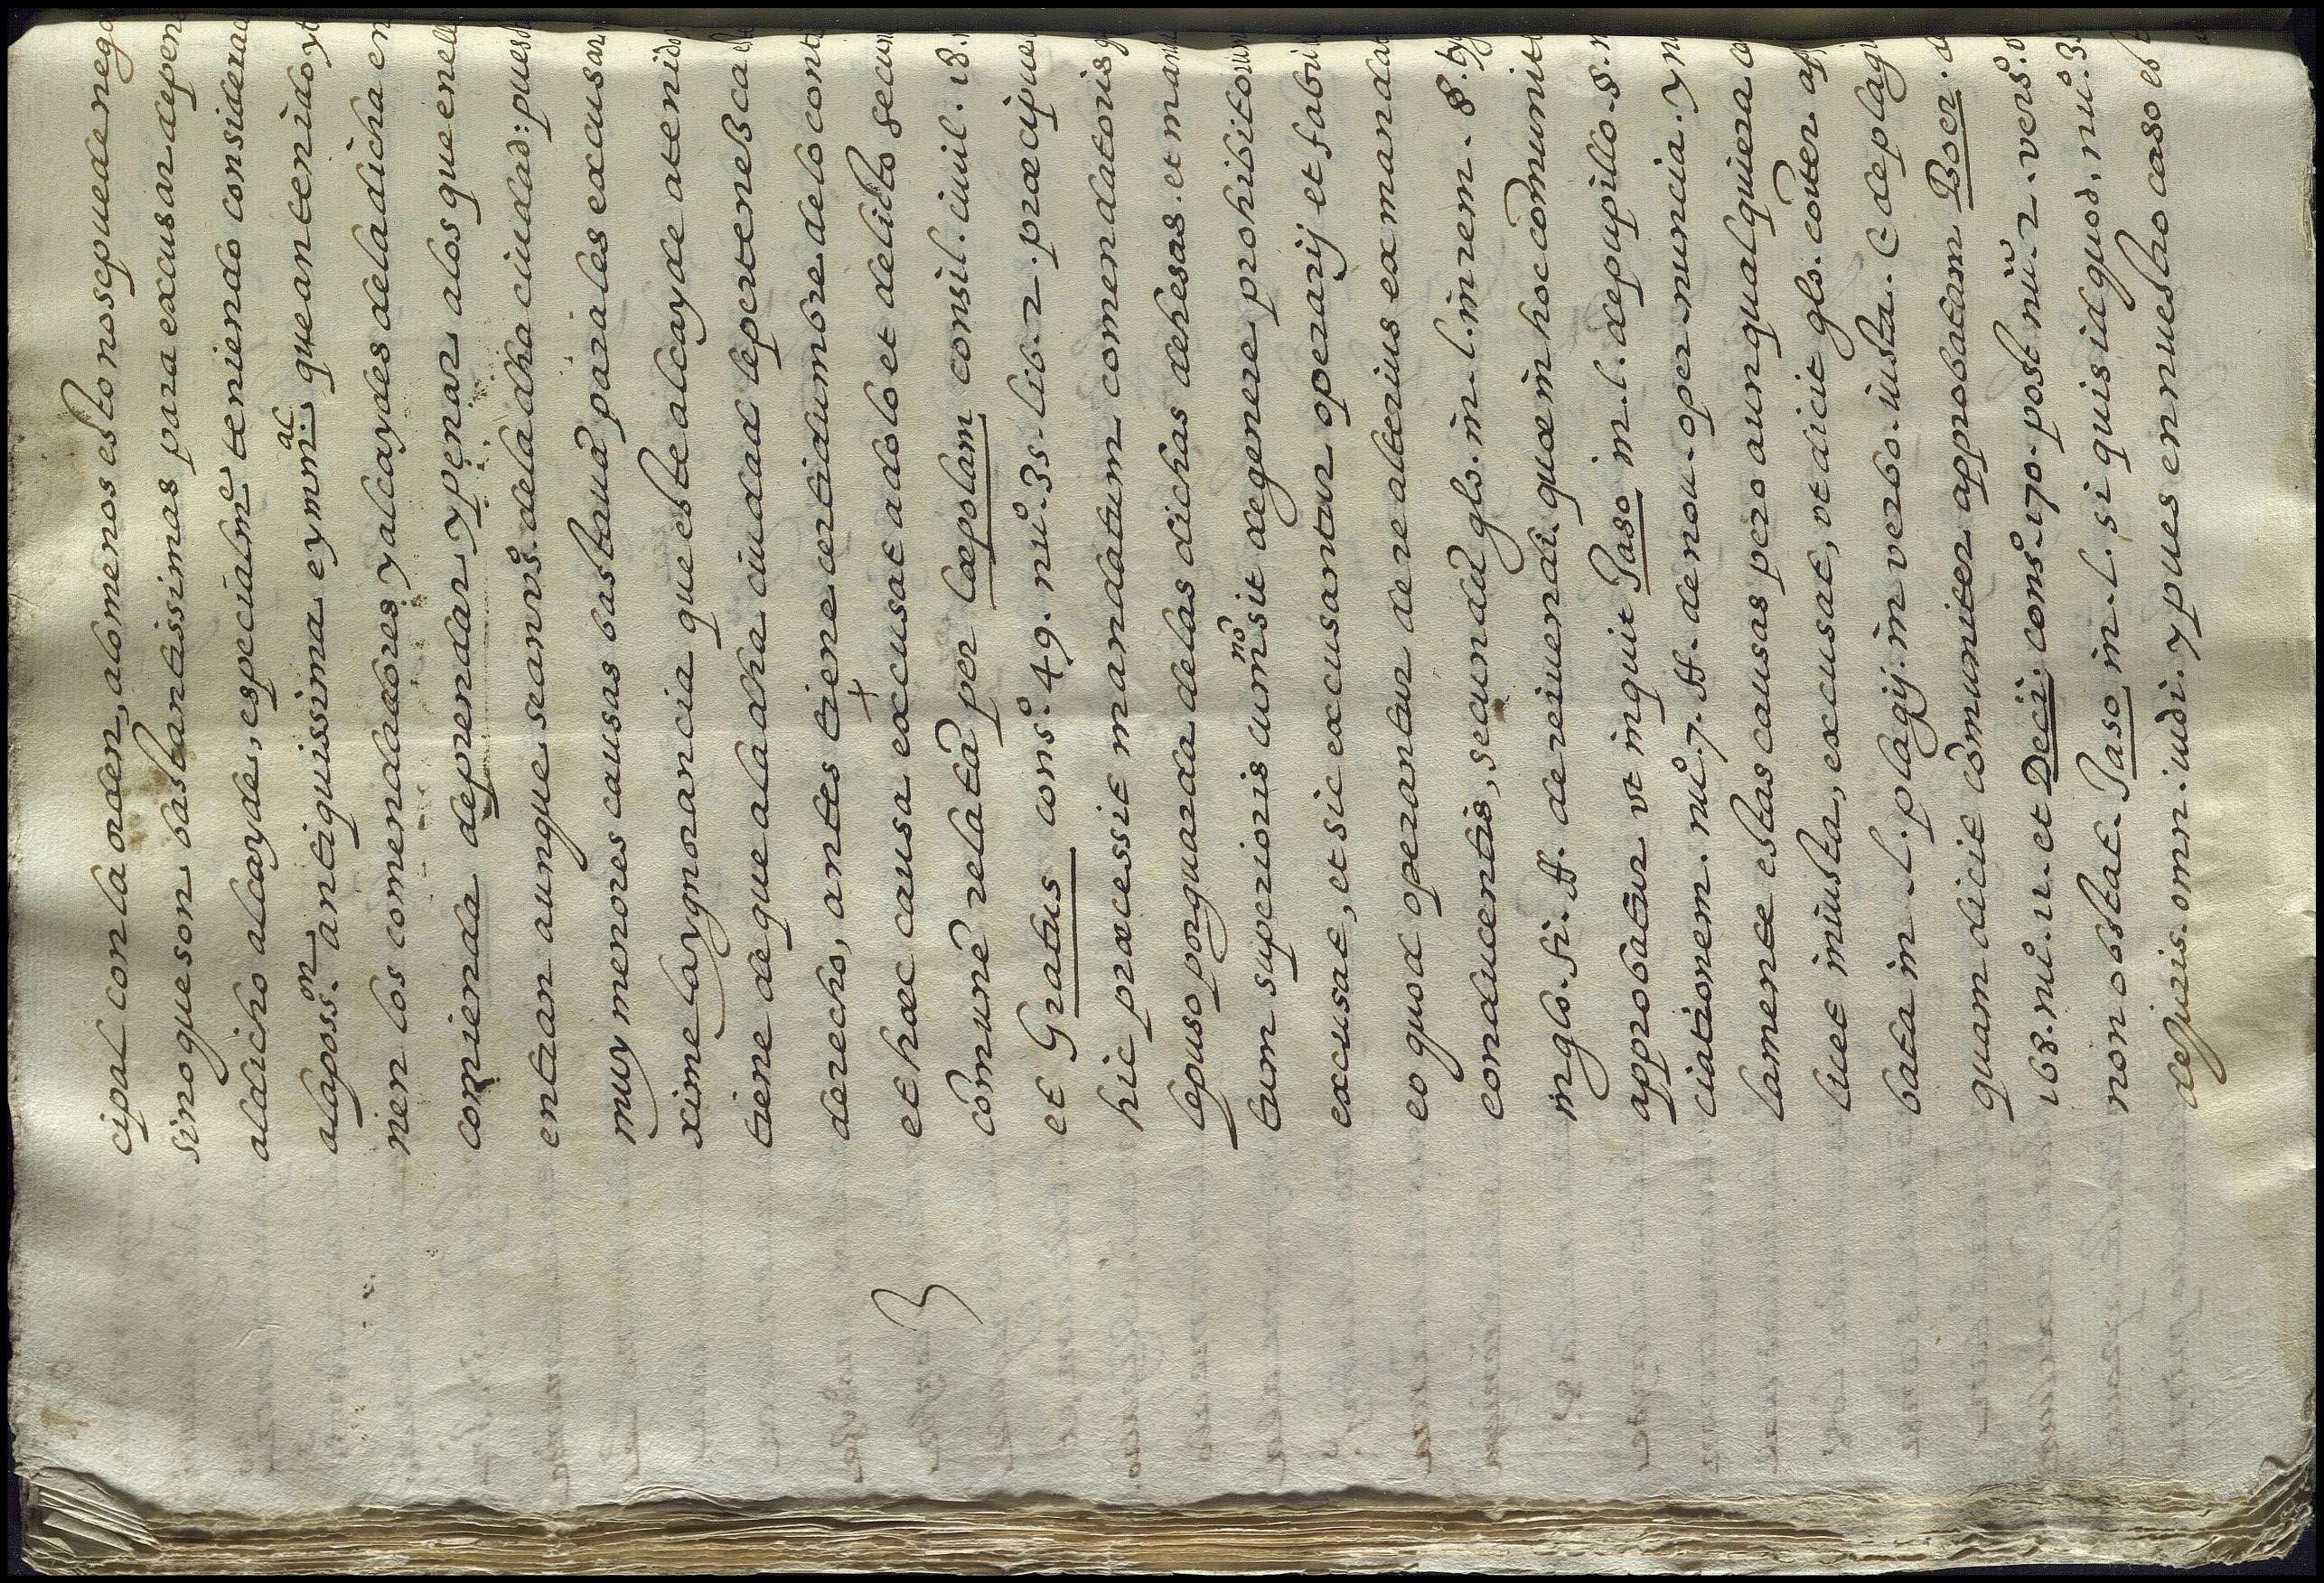 cipal con la orden, alomenos esto no se puede nega
sino que son bastantissimas para excusar de pen
al dicho alcayde, especialmᵉ teniendo considerac
a la poss.ᵒⁿ antiquissima eymm.ᵃˡ que an tenido y t
nen los comendadores y alcaydes de la dicha en
comienda de prendar y penar a los que en ell
entran aunque sean vº.s de la dha ciudad: pues
muy menores causas bastauā para les excusar
xime la ygnorancia que este alcayde a tenido
tiene de que a la dha ciudad le pertenesca el
derecho, antes tiene certidumbre de lo cont
et hæc causa excusat a dolo et delicto secun
comunē relatā per Cæpolam consil. ciuil. 18.
et Gratus consº. 49. nuº. 35. lib. 2. præcipue
hic præcessit mandatum comendatoris q
le puso por guarda de las dichas dehesas. et man
tum superioris cum sit de genere prohibito
excusat, et sic excusantur operarij et fabri
eo quod operantur de re alterius ex manda
conducentis, secundū glo. in l. in rem. §.
in glo. fi. ff. de rei uendi. quæ in hoc comunit
approbatur vt inquit Jaso in l. de pupillo. §.
ciationem. nuº. 7. ff. de nou. oper. nuncia. y n
lamente estas causas pero aun qualquiera
licet iniusta, excusat, vt dicit glo. coiter ap
bata in l. plagij. in verbo. iusta. C de plagi
quam dicit comuniter approbatam Boer. de
168. nuº. 11. et Decii. consº. 170. post nuº. 2. versº.
non obstat. Jaso in l. si quis id quod, nuº. 35
de juris. omn. iudi. y pues en nuestro caso est